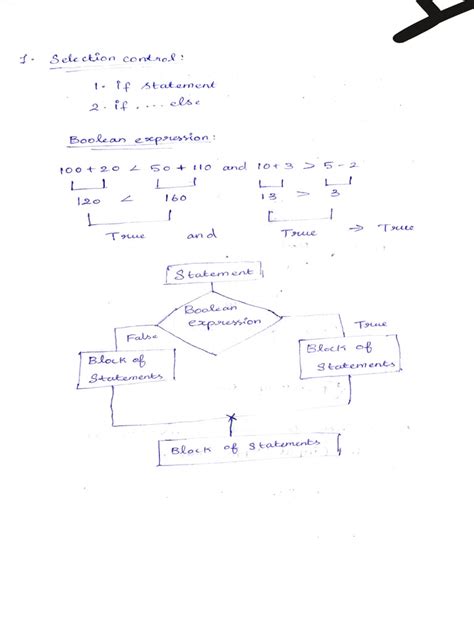 1. Selection control:
1. if statement
2. if .... else
Boolean expression:
100 + 20 < 50 + 110 and 10+3 > 5-2
120 < 160 13 > 3
True and True → True
Statement
Boolean
expression
False True
Block of
Statements
Block of
Statements
Block of Statements